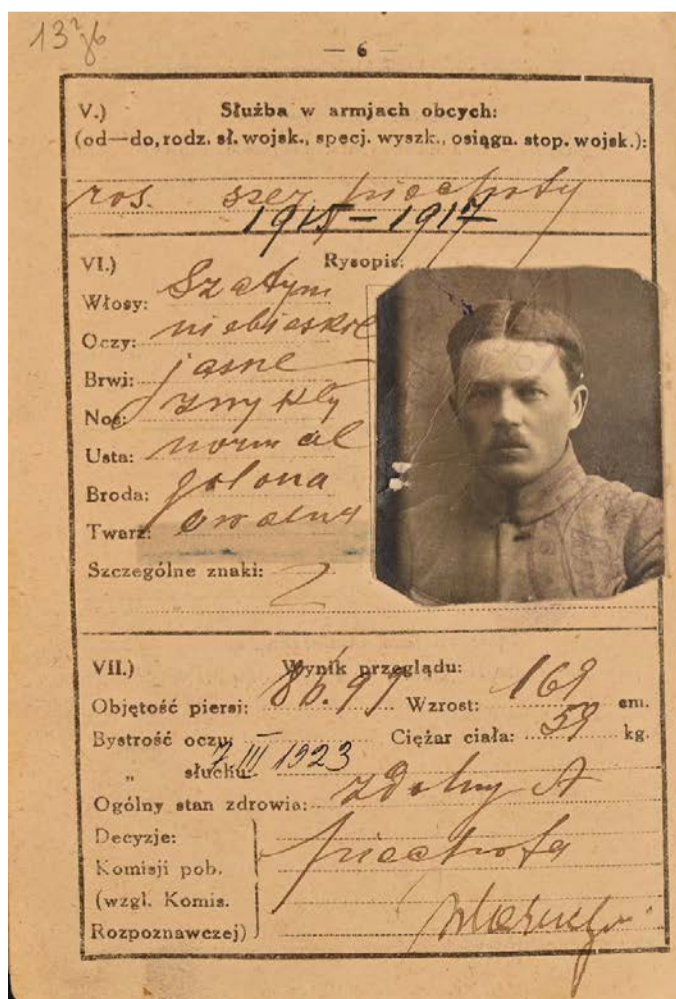 — 6 —
V.) Służba w armjach obcych:
(od—do, rodz. sł. wojsk., specj. wyszk., osiągn. stop. wojsk.):
ros. szer piechoty
1915 – 1917
VI.) Rysopis:
Włosy: Szatyn
Oczy: niebieskie
Brwi: jasne
Nos: zwykły
Usta: normal
Broda: golona
Twarz: owalna
Szczególne znaki:
VII.) Wynik przeglądu:
Objętość piersi: 86.97 Wzrost: 169 cm.
Bystrość oczu: Ciężar ciała: 59 kg.
„ słuchu: 7 III 1923
Ogólny stan zdrowia: zdolny A
Decyzje: piechota
Komisji pob.
(wzgl. Komis.
Rozpoznawczej)